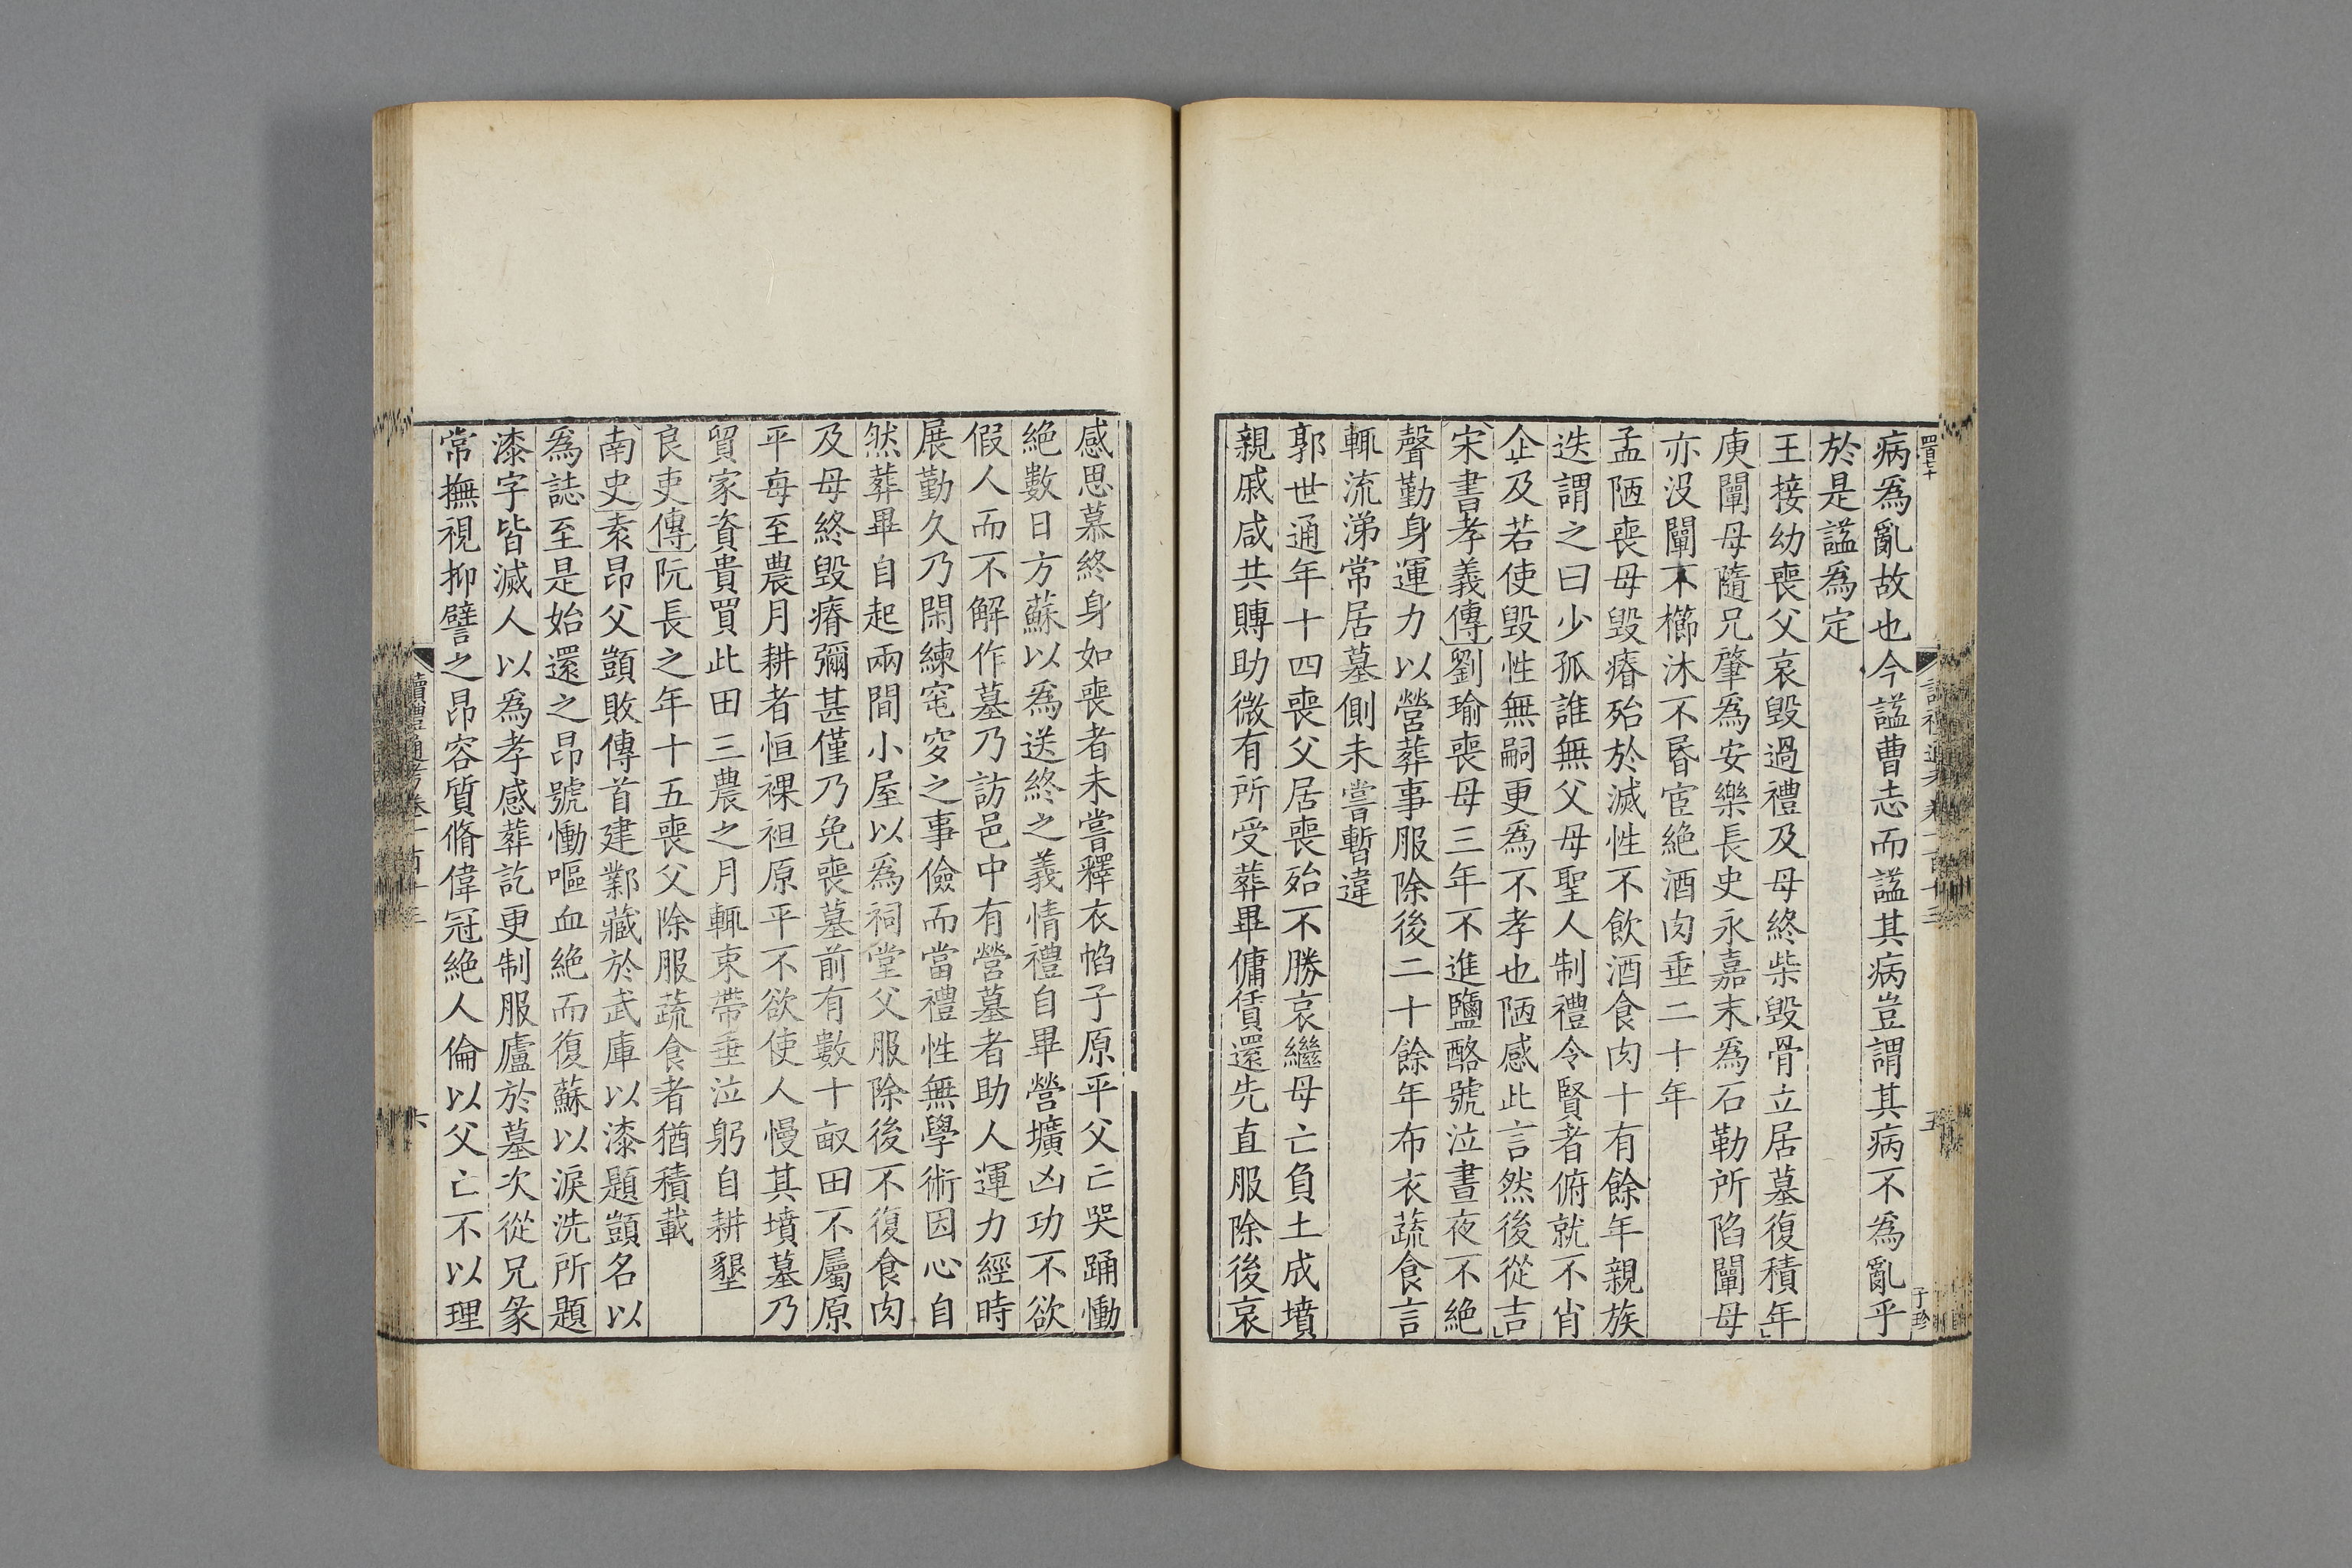 四百七十
病爲亂故也今諡曹志而諡其病豈謂其病不爲亂乎
於是諡爲定
王接幼喪父哀毁過禮及母終柴毁骨立居墓復積年
庾闡母隨兄肇爲安樂長史永嘉末爲石勒所陷闡母
亦没闡不櫛沐不昬宦絶酒肉垂二十年
孟陋喪母毁瘠殆於滅性不飲酒食肉十有餘年親族
迭謂之曰少孤誰無父母聖人制禮令賢者俯就不肖
企及若使毁性無嗣更爲不孝也陋感此言然後從吉
宋書孝義傳劉瑜喪母三年不進鹽酪號泣晝夜不絶
聲勤身運力以營葬事服除後二十餘年布衣蔬食言
輒流涕常居墓側未嘗暫違
郭世通年十四喪父居喪殆不勝哀繼母亡負土成墳
親戚咸共賻助微有所受葬畢傭賃還先直服除後哀
五
子珍
感思慕終身如喪者未嘗釋衣帢子原平父亡哭踊慟
絶數日方蘇以爲送終之義情禮自畢營壙凶功不欲
假人而不解作墓乃訪邑中有營墓者助人運力經時
展勤久乃閑練窀穸之事儉而當禮性無學術因心自
然葬畢自起兩間小屋以爲祠堂父服除後不復食肉
及母終毁瘠彌甚僅乃免喪墓前有數十畝田不屬原
平每至農月耕者恒裸袒原平不欲使人慢其墳墓乃
貿家資貴買此田三農之月輒束帶垂泣躬自耕墾
良吏傳阮長之年十五喪父除服蔬食者猶積載
南史袁昂父顗敗傳首建鄴藏於武庫以漆題顗名以
爲誌至是始還之昂號慟嘔血絶而復蘇以淚洗所題
漆字皆滅人以爲孝感葬訖更制服廬於墓次從兄彖
常撫視抑譬之昂容質脩偉冠絶人倫以父亡不以理
讀禮通考卷一百十三
六